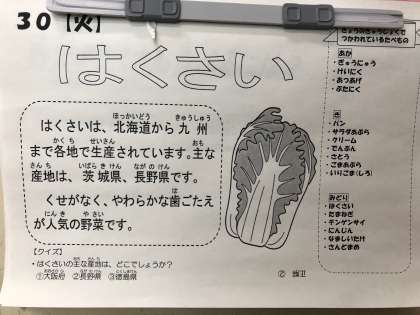 30【火】
はくさい
はくさいは、北海道から九州
まで各地で生産されています。主な
産地は、茨城県、長野県です。
くせがなく、やわらかな歯ごたえ
が人気の野菜です。
【クイズ】
・はくさいの主な産地は、どこでしょうか？
①大阪府 ②長野県 ③徳島県
きょうのきゅうしょくで
つかわれているたべもの
あか
・ぎゅうにゅう
・けいにく
・あつあげ
・ぶたにく
き
・パン
・サラダあぶら
・クリーム
・でんぷん
・さとう
・ごまあぶら
・いりごま(しろ)
みどり
・はくさい
・たまねぎ
・チンゲンサイ
・にんじん
・なましいたけ
・さんどまめ